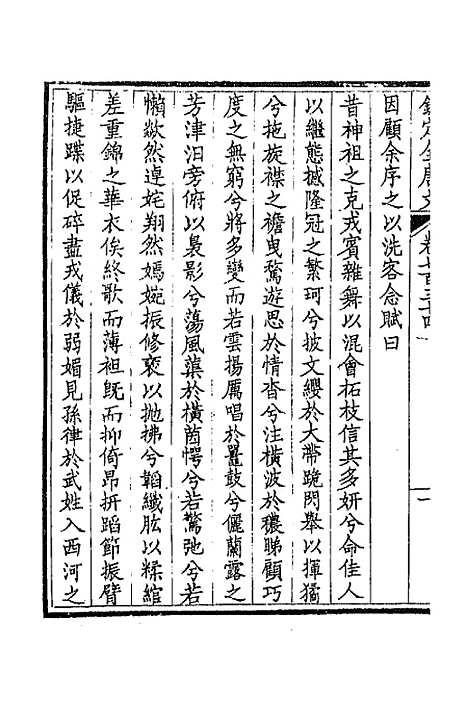 欽定全唐文 卷七百三十四 一
因顧余序之以洗客念賦曰
昔神祖之克戎賓雜舞以混會柘枝信其多妍兮命佳人
以繼態撼隆冠之繁珂兮披文纓於大帶跪閃舉以揮㩎
兮拖旋襟之襜曳騖遊思於情杳兮注橫波於穠睇顧巧
度之無窮兮將多變而若雲揚厲唱於鼉鼓兮儷蘭露之
芳津汩旁俯以裊影兮蕩風蕖於橫茵愕兮若驚弛兮若
懶歘然遽姹翔然嫣婉振修裒以拋拂兮韜纖肱以糅綰
差重錦之華衣俟終歌而薄袒旣而抑倚昂拚蹈節振臂
驅捷蹀以促碎盡戎儀於弱媚見孫律於武姓入西河之